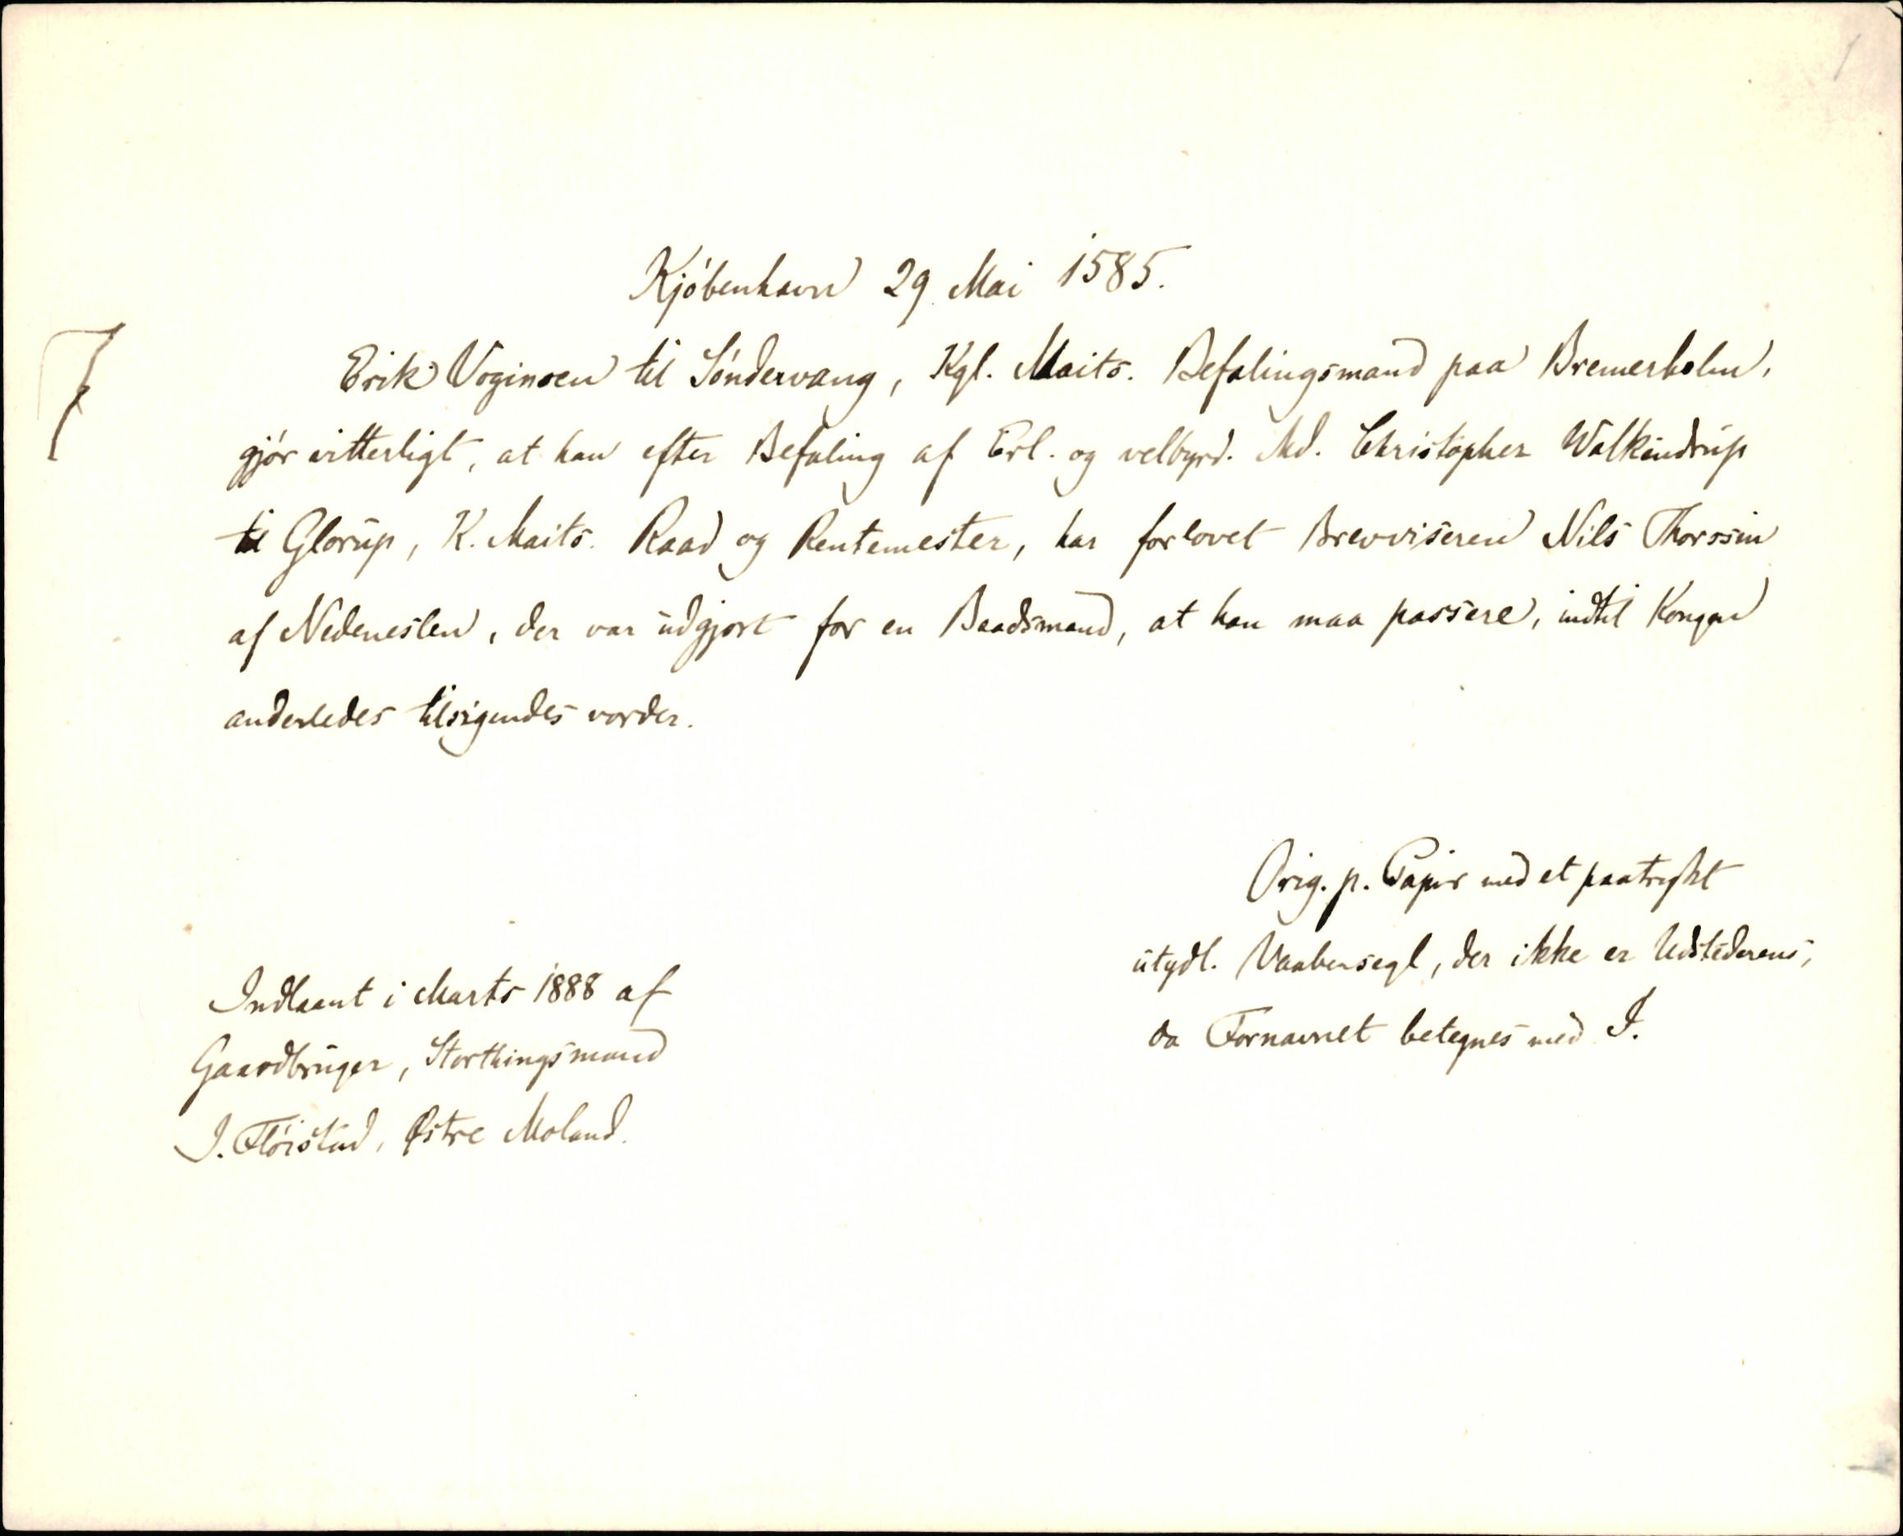 Kjöbenhavn 29 Mai 1585.
Erik Voginsen til Söndervang, Kgl. Maits. Befalingsmand paa Bremerholm,
gjör vitterligt, at han efter Befaling af Erl. og velbyrd. Md. Christopher Walkindrup
til Glorup, K. Maits. Raad og Rentemester, har forlovet Brevviseren Nils Thorssin
af Nedeneslen, der var udgjort for en Baadsmand, at han maa passere, indtil
anderledes tilsigendes vorder.
Orig. p. Papir med et paatrykt
utydl. Vaabensegl, der ikke er Udstederens,
da Fornavnet betegnes med I.
Indlaant i Marts 1888 af
Gaardbruger, Storthingsmand
J. Flöistad, Østre Moland.